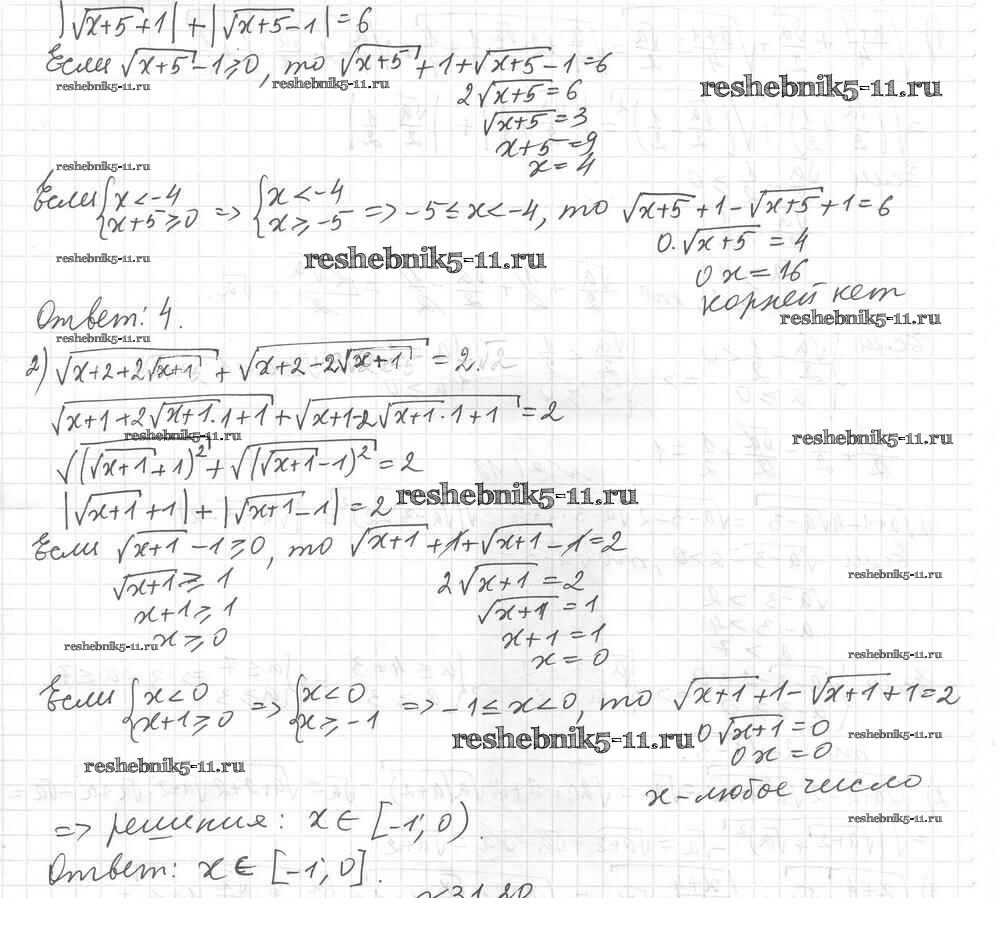 |√(x+5)+1| + |√(x+5)-1| = 6
Если √(x+5) -1 ≥ 0, то √(x+5) + 1 + √(x+5) - 1 = 6
reshebnik5-11.ru reshebnik5-11.ru reshebnik5-11.ru
2√(x+5) = 6
√(x+5) = 3
x+5 = 9
x = 4
reshebnik5-11.ru
Если {x < -4 => {x < -4 => -5 ≤ x < -4, то √(x+5) + 1 - √(x+5) + 1 = 6
{x+5 ≥ 0 {x ≥ -5
0·√(x+5) = 4
reshebnik5-11.ru reshebnik5-11.ru
0x = 16
корней нет
Ответ: 4.
reshebnik5-11.ru
reshebnik5-11.ru
2) √(x+2+2√(x+1)) + √(x+2-2√(x+1)) = 2.
√(x+1+2√(x+1)·1+1) + √(x+1-2√(x+1)·1+1) = 2
reshebnik5-11.ru reshebnik5-11.ru
√((√(x+1)+1)²) + √((√(x+1)-1)²) = 2
|√(x+1)+1| + |√(x+1)-1| = 2
reshebnik5-11.ru
Если √(x+1) -1 ≥ 0, то √(x+1) + 1 + √(x+1) - 1 = 2
√(x+1) ≥ 1 2√(x+1) = 2
reshebnik5-11.ru
x+1 ≥ 1 √(x+1) = 1
x ≥ 0 x+1 = 1
reshebnik5-11.ru reshebnik5-11.ru
x = 0
Если {x < 0 => {x < 0 => -1 ≤ x < 0, то √(x+1) + 1 - √(x+1) + 1 = 2
{x+1 ≥ 0 {x ≥ -1
0√(x+1) = 0
reshebnik5-11.ru reshebnik5-11.ru
0x = 0
reshebnik5-11.ru
x - любое число
=> решения: x ∈ [-1; 0).
reshebnik5-11.ru
Ответ: x ∈ [-1; 0].